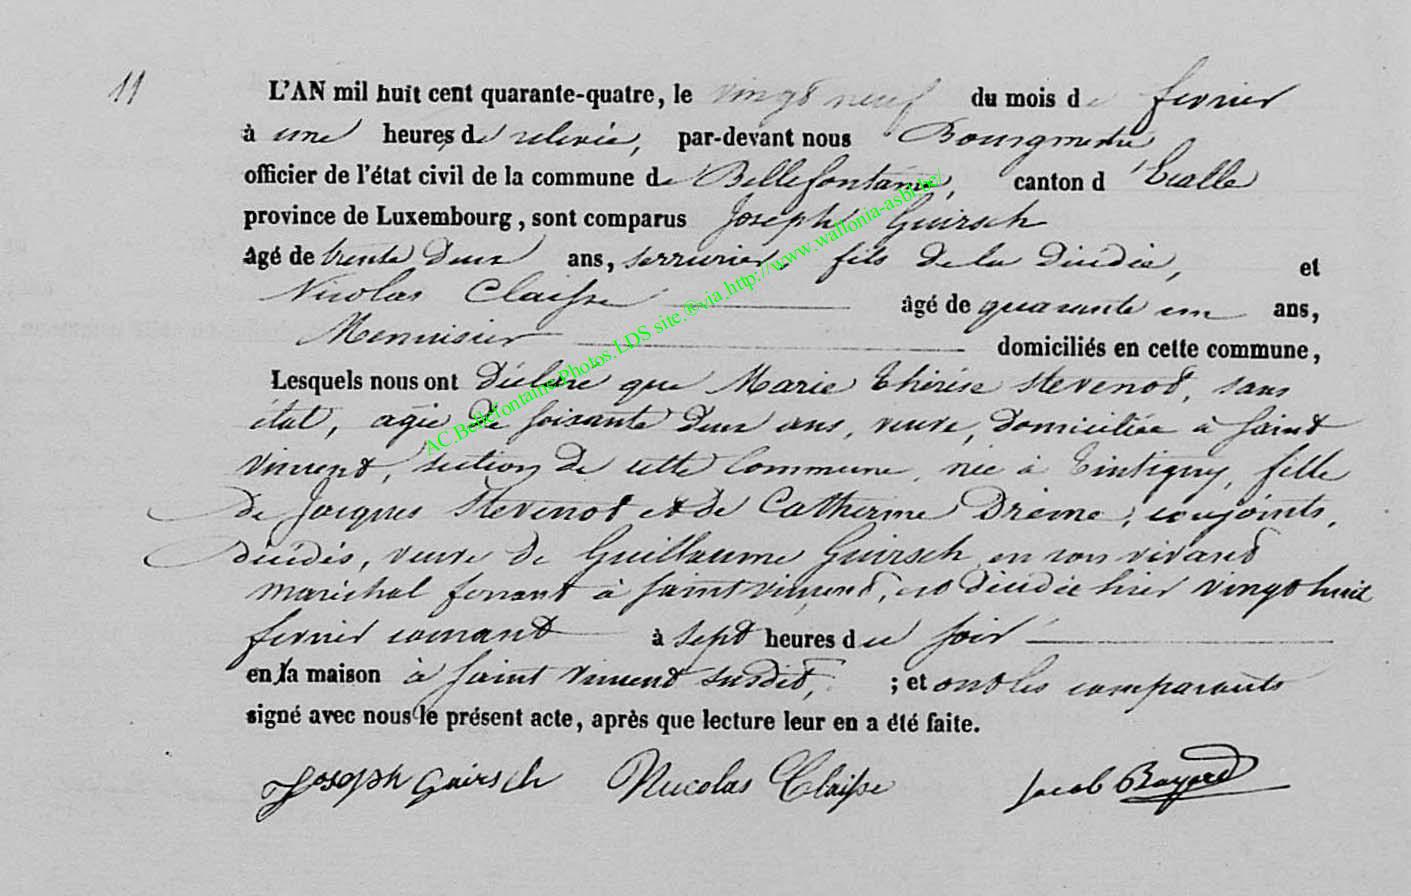 11
L'AN mil huit cent quarante-quatre, le vingt neuf du mois de fevrier
à une heures de relevée, par-devant nous Bourgmestre
officier de l'état civil de la commune de Bellefontaine, canton d'Etalle
province de Luxembourg, sont comparus Joseph Guirsch
âgé de trente deux ans, serrurier, fils de la décédée, et
Nicolas Claisse âgé de quarante un ans,
Menuisier domiciliés en cette commune,
Lesquels nous ont déclaré que Marie Thérèse Stevenot, sans
état, agée de soixante deux ans, veuve, domiciliée à Saint
Vincent, section de cette Commune, née à Tintigny, fille
de Jacques Stevenot et de Catherine Drème, conjoints,
décédés, veuve de Guillaume Guirsch en son vivant
maréchal ferrant à Saint Vincent, est décédée hier vingt huit
fevrier courant à sept heures du soir
en la maison à Saint Vincent susdit, ; et ont les comparants
signé avec nous le présent acte, après que lecture leur en a été faite.
Joseph Guirsch Nicolas Claisse Jacob Bayard
AC.Bellefontaine.Photos.LDS site.®via http://www.wallonia-asbl.be/